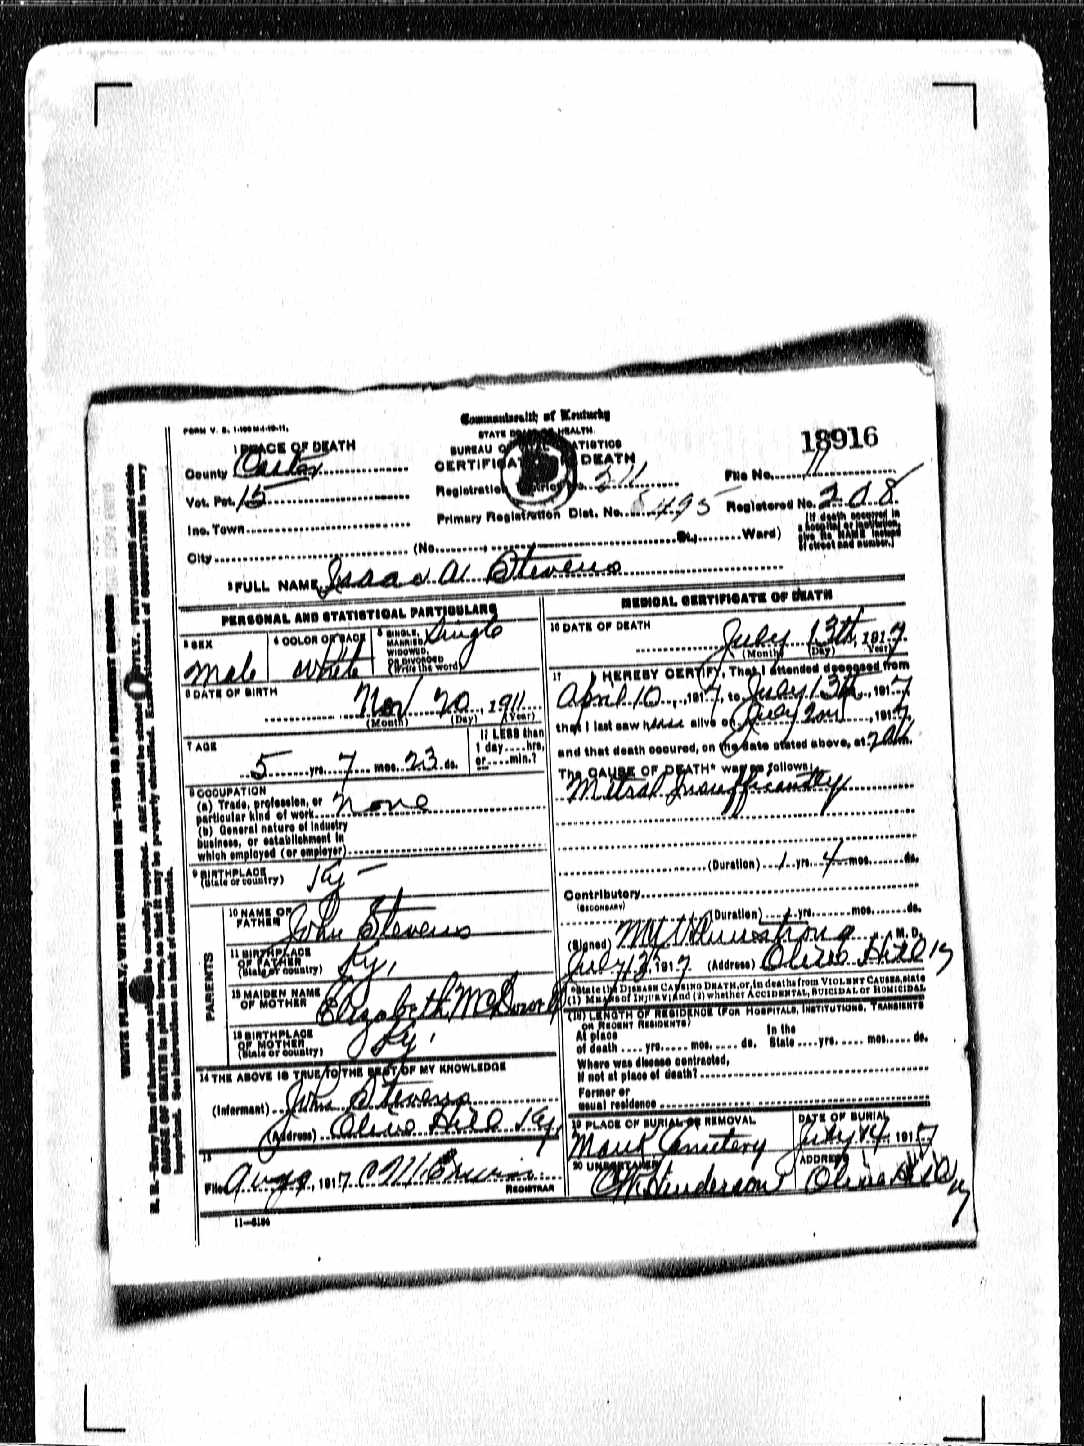 FORM V. S. 1-100 M-1-19-11.
Commonwealth of Kentucky
STATE BOARD OF HEALTH.
BUREAU OF VITAL STATISTICS
CERTIFICATE OF DEATH
18916
1 PLACE OF DEATH
County Carter
Vot. Pct. 15
Inc. Town
City
Registration District No. 211
File No. 11
Primary Registration Dist. No. 8495
Registered No. 208
(No. St.; Ward)
[If death occurred in
a hospital or institution,
give its NAME instead
of street and number.]
2 FULL NAME Isaac A Stevens
PERSONAL AND STATISTICAL PARTICULARS
3 SEX
Male
4 COLOR OR RACE
White
5 SINGLE,
MARRIED,
WIDOWED,
OR DIVORCED
(Write the word)
Single
6 DATE OF BIRTH
Nov 20, 1911
(Month) (Day) (Year)
7 AGE
5 yrs. 7 mos. 23 ds.
If LESS than
1 day....hrs,
or....min.?
8 OCCUPATION
(a) Trade, profession, or
particular kind of work none
(b) General nature of industry
business, or establishment in
which employed (or employer)
9 BIRTHPLACE
(State or country) Ky
PARENTS
10 NAME OF
FATHER John Stevens
11 BIRTHPLACE
OF FATHER
(State or country) Ky,
12 MAIDEN NAME
OF MOTHER Elizabeth McDowell
13 BIRTHPLACE
OF MOTHER
(State or country) Ky,
14 THE ABOVE IS TRUE TO THE BEST OF MY KNOWLEDGE
(Informant) John Stevens
(Address) Olive Hill Ky,
15
Filed Aug 9, 1917
REGISTRAR
11-5184
MEDICAL CERTIFICATE OF DEATH
16 DATE OF DEATH
July 13th, 1917.
(Month) (Day) (Year)
17 I HEREBY CERTIFY, That I attended deceased from
April 10, 1917, to July 13th, 1917,
that I last saw h alive on July 2nd, 1917,
and that death occured, on the date stated above, at 2 am.
The CAUSE OF DEATH* was as follows:
Mitral Insufficiently
(Duration) 1 yrs. 4 mos. ds.
Contributory
(SECONDARY)
(Duration) 1 yrs. mos. ds.
(Signed) Armstrong M. D.
July 13, 1917 (Address) Olive Hill Ky
*State the DISEASE CAUSING DEATH, or, in deaths from VIOLENT CAUSES, state
(1) MEANS of INJURY; and (2) whether ACCIDENTAL, SUICIDAL or HOMICIDAL.
(18) LENGTH OF RESIDENCE (FOR HOSPITALS, INSTITUTIONS, TRANSIENTS
OR RECENT RESIDENTS)
At place In the
of death .... yrs. .... mos. .... ds. State .... yrs. .... mos. .... ds.
Where was disease contracted,
if not at place of death?
Former or
usual residence
19 PLACE OF BURIAL OR REMOVAL
Mauk Cemetery
DATE OF BURIAL
July 14, 1917
20 UNDERTAKER
Henderson
ADDRESS
Olive Hill Ky
WRITE PLAINLY, WITH UNFADING INK—THIS IS A PERMANENT RECORD